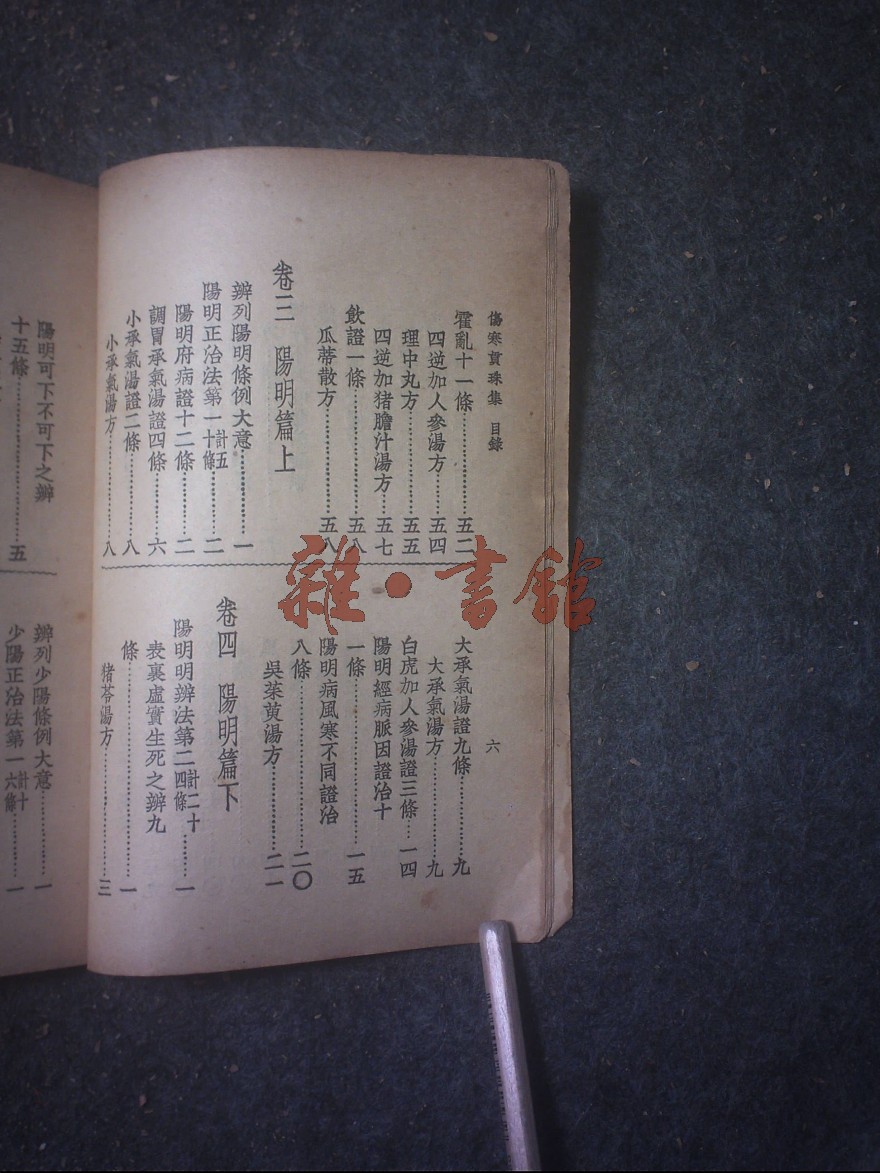 傷寒貫珠集 目錄
六
霍亂十一條……五二
四逆加人參湯方……五四
理中丸方……五五
四逆加猪膽汁湯方……五七
飲證一條……五八
瓜蒂散方……五八
卷三 陽明篇上
辨列陽明條例大意……一
陽明正治法第一計五十條……二
陽明府病證十二條……二
調胃承氣湯證四條……六
小承氣湯證二條……八
小承氣湯方……八
大承氣湯證九條……九
大承氣湯方……九
白虎加人參湯證三條……一四
陽明經病脈因證治十
一條……一五
陽明病風寒不同證治
八條……二〇
吳茱萸湯方……二一
卷四 陽明篇下
陽明明辨法第二計二十四條……一
表裏虛實生死之辨九
條……一
猪苓湯方……三
陽明可下不可下之辨
十五條……五
辨列少陽條例大意……一
少陽正治法第一計十六條……一
雜·書館